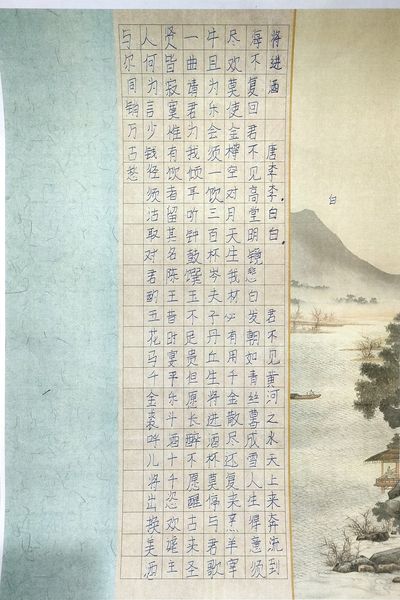 白
将进酒 唐李李白白 君不见黄河之水天上来奔流到
海不复回君不见高堂明镜悲白发朝如青丝暮成雪人生得意须
尽欢莫使金樽空对月天生我材必有用千金散尽还复来烹羊宰
牛且为乐会须一饮三百杯岑夫子丹丘生将进酒杯莫停与君歌
一曲请君为我倾耳听钟鼓馔玉不足贵但愿长醉不愿醒古来圣
贤皆寂寞惟有饮者留其名陈王昔时宴平乐斗酒十千恣欢谑主
人何为言少钱径须沽取对君酌五花马千金裘呼儿将出换美酒
与尔同销万古愁